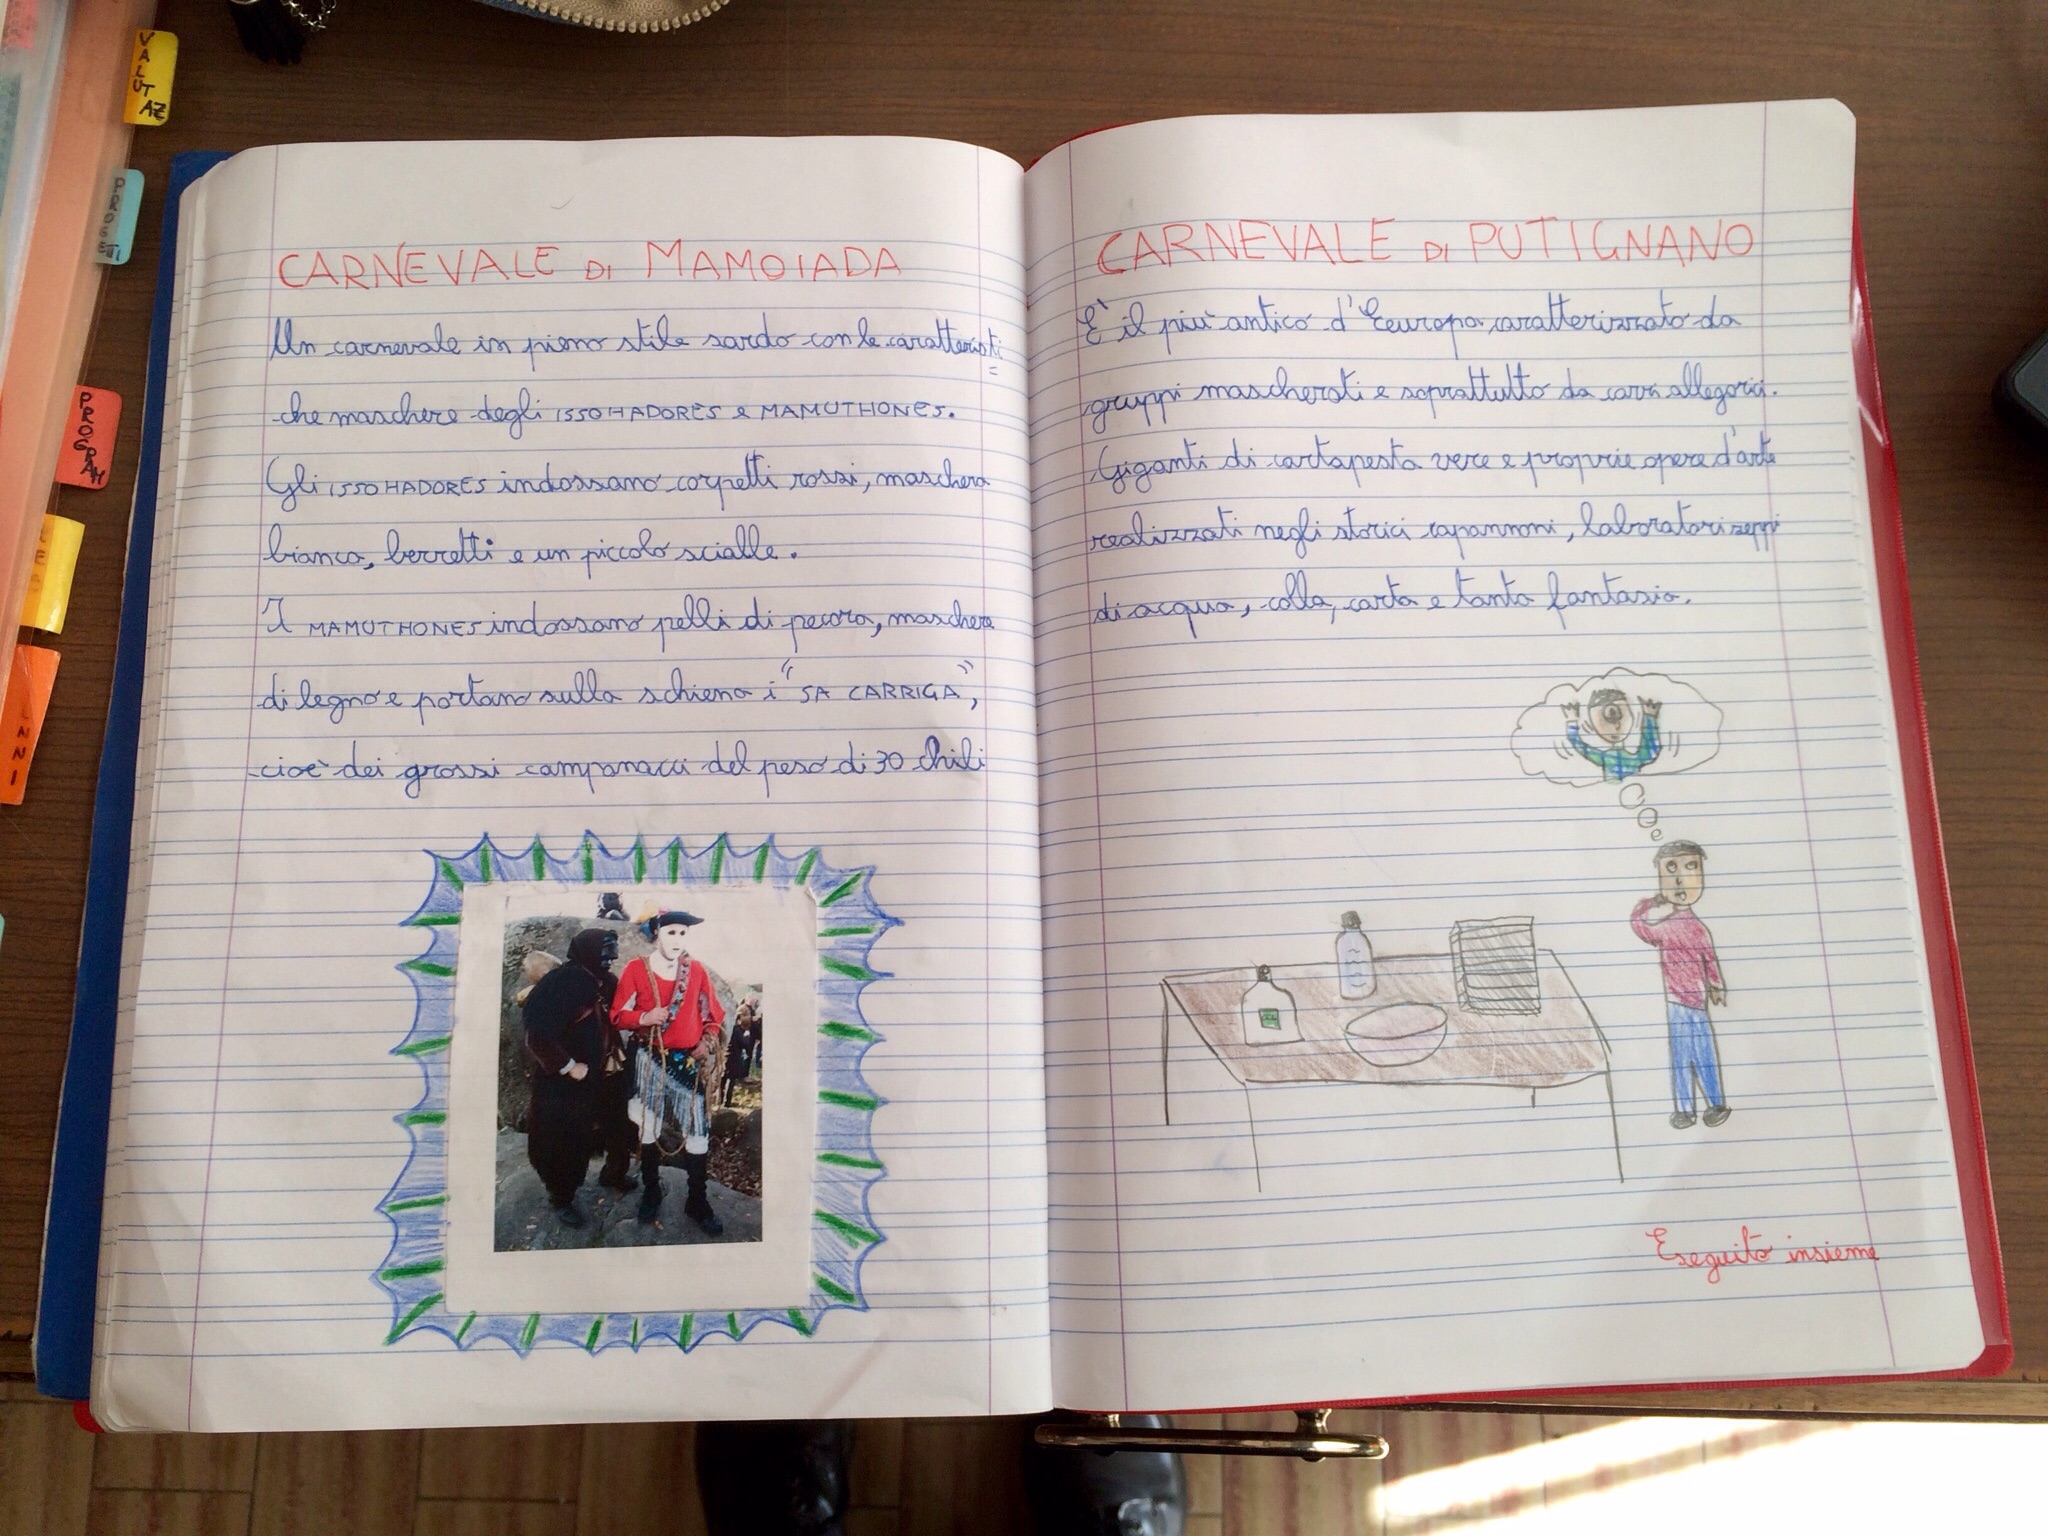 VALUTAZ
PROGETTI
PROGRAM
CARNEVALE DI MAMOIADA
Un carnevale in pieno stile sardo con le caratteristi
che maschere degli ISSOHADORES e MAMUTHONES.
Gli ISSOHADORES indossano corpetti rossi, maschera
bianca, berretti e un piccolo scialle.
I MAMUTHONES indossano pelli di pecora, maschere
di legno e portano sulla schiena i "SA CARRIGA",
cioè dei grossi campanacci del peso di 30 chili
CARNEVALE DI PUTIGNANO
È il più antico d'Eeuropa caratterizzato da
gruppi mascherati e soprattutto da carri allegorici.
Giganti di cartapesta vere e proprie opere d'arte
realizzati negli storici capannoni, laboratori zeppi
di acqua, colla, carta e tanta fantasia.
Eseguito insieme